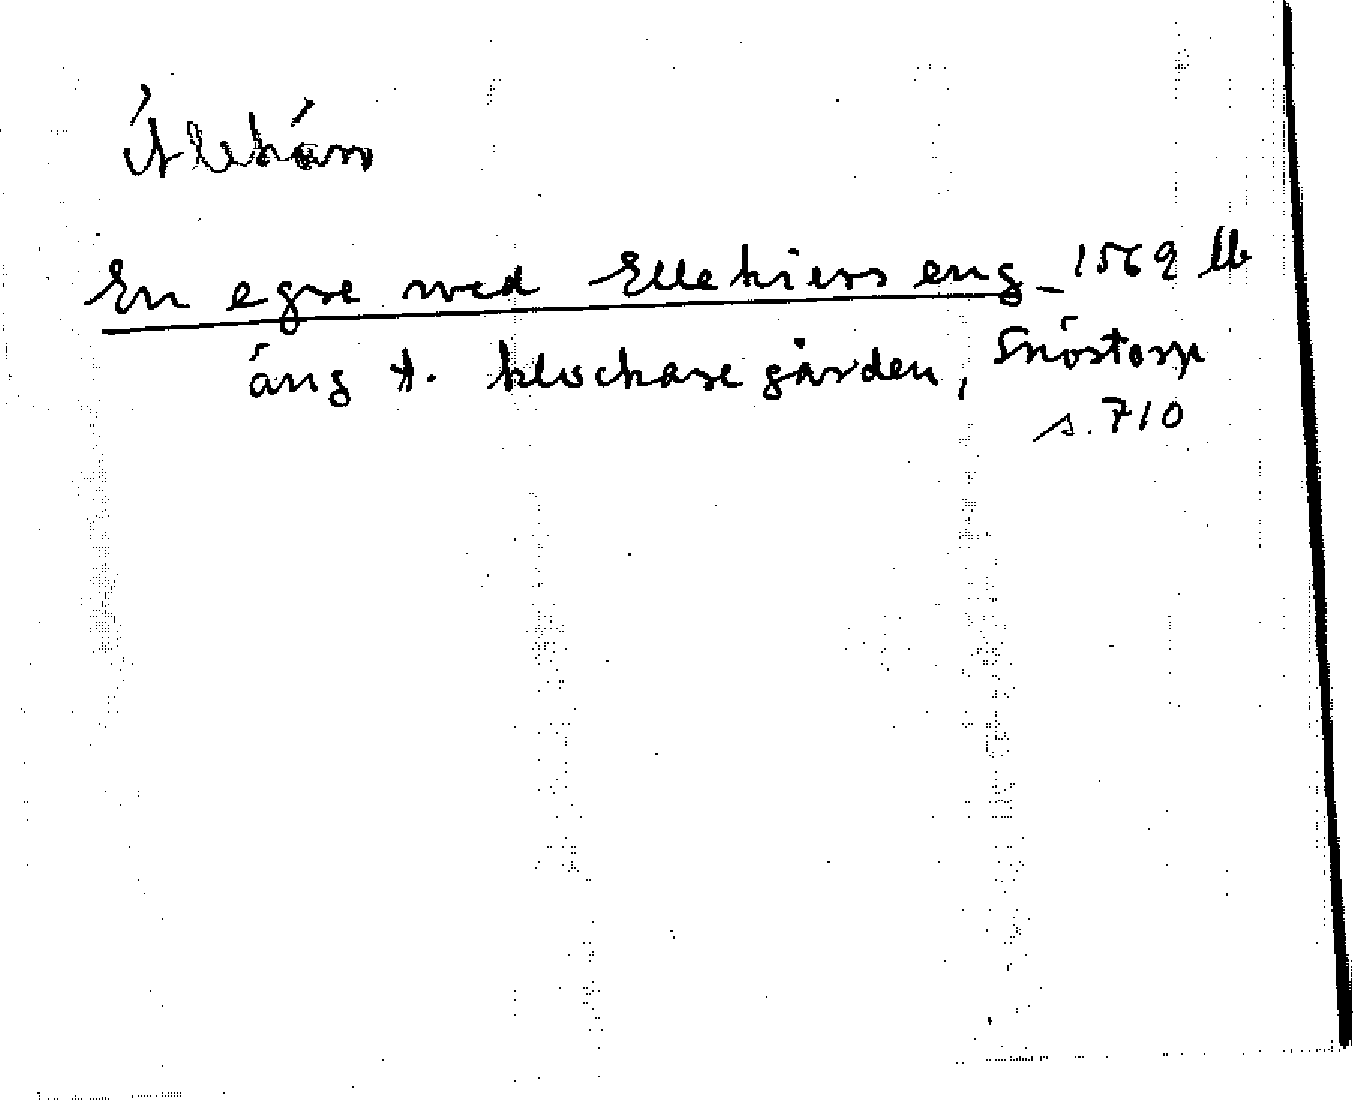 Älekärr
En egre wed Ellekierss eng_ 1569 lb
äng t. klockaregården, Snöstorp
s. 710